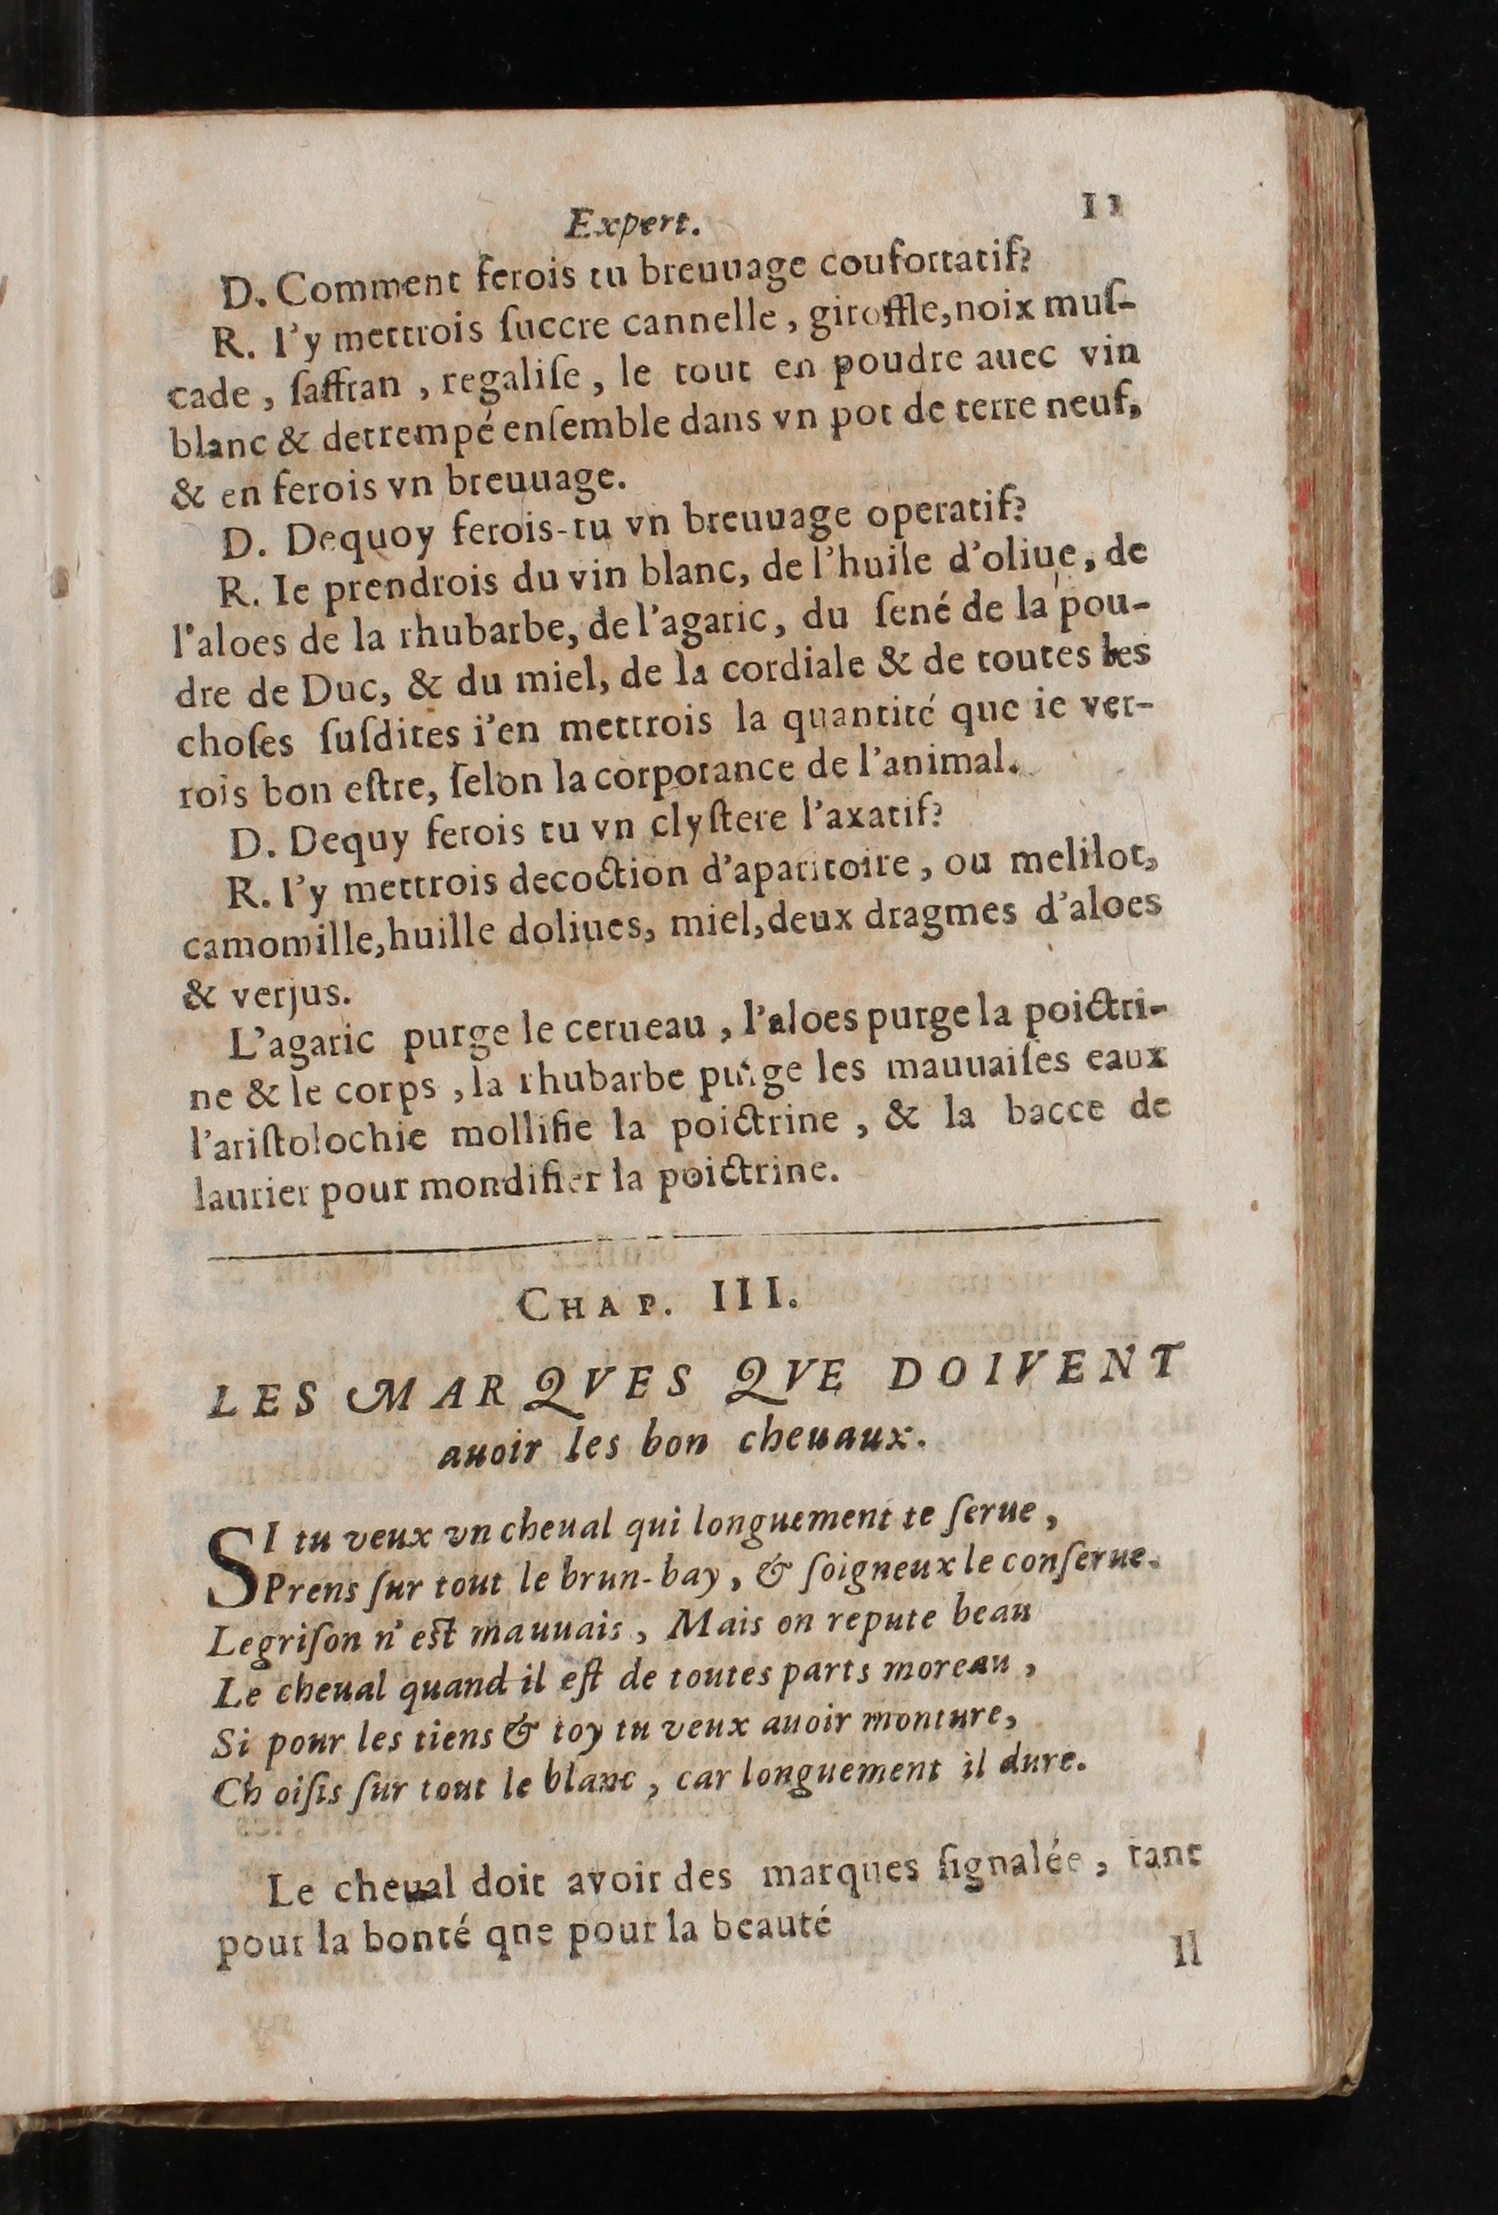 Expert. 11
D. Comment ferois tu breuuage coufortatif?
R. I'y mettrois ſuccre cannelle, giroffle, noix muſ-
cade, ſaffran, regaliſe, le tout en poudre auec vin
blanc & detrempé enſemble dans vn pot de terre neuf,
& en ferois vn breuuage.
D. Dequoy ferois-tu vn breuuage operatif?
R. Ie prendrois du vin blanc, de l'huile d'oliue, de
l'aloes de la rhubarbe, de l'agaric, du ſené de la pou-
dre de Duc, & du miel, de la cordiale & de toutes les
choſes ſuſdites i'en mettrois la quantité que ie ver-
rois bon eſtre, ſelon la corporance de l'animal.
D. Dequy ferois tu vn clyſtere l'axatif?
R. I'y mettrois decoction d'aparitoire, ou melilot,
camomille, huille doliues, miel, deux dragmes d'aloes
& verjus.
L'agaric purge le cerueau, l'aloes purge la poictri-
ne & le corps, la rhubarbe purge les mauuaiſes eaux
l'ariſtolochie mollifie la poictrine, & la bacce de
laurier pour mondifier la poictrine.
CHAP. III.
LES MARQVES QVE DOIVENT
auoir les bon cheuaux.
SI tu veux vn cheual qui longuement te ſerue,
Prens ſur tout le brun-bay, & ſoigneux le conſerue.
Legriſon n'eſt mauuais, Mais on repute beau
Le cheual quand il eſt de toutes parts moreau,
Si pour les tiens & toy tu veux auoir monture,
Ch oiſis ſur tout le blanc, car longuement il dure.
Le cheual doit avoir des marques ſignalée, tant
pour la bonté qne pour la beauté
Il